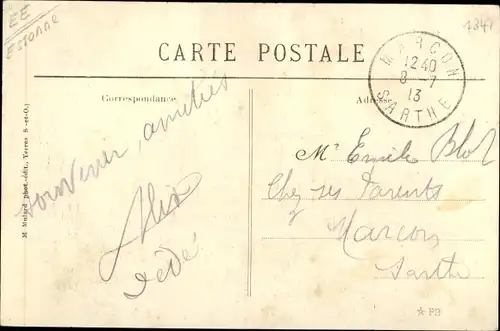 EE
ESSONNE
1341
CARTE POSTALE
MARÇON
12 40
8 - 7
13
SARTHE
Correspondance
Adresse
M. Mulard phot.-édit., Yerres S.-et-O.)
souvenir, amitiés
Dédé
Mr Emile Blot
Chez ses Parents
Marcon
Sarthe
* PB